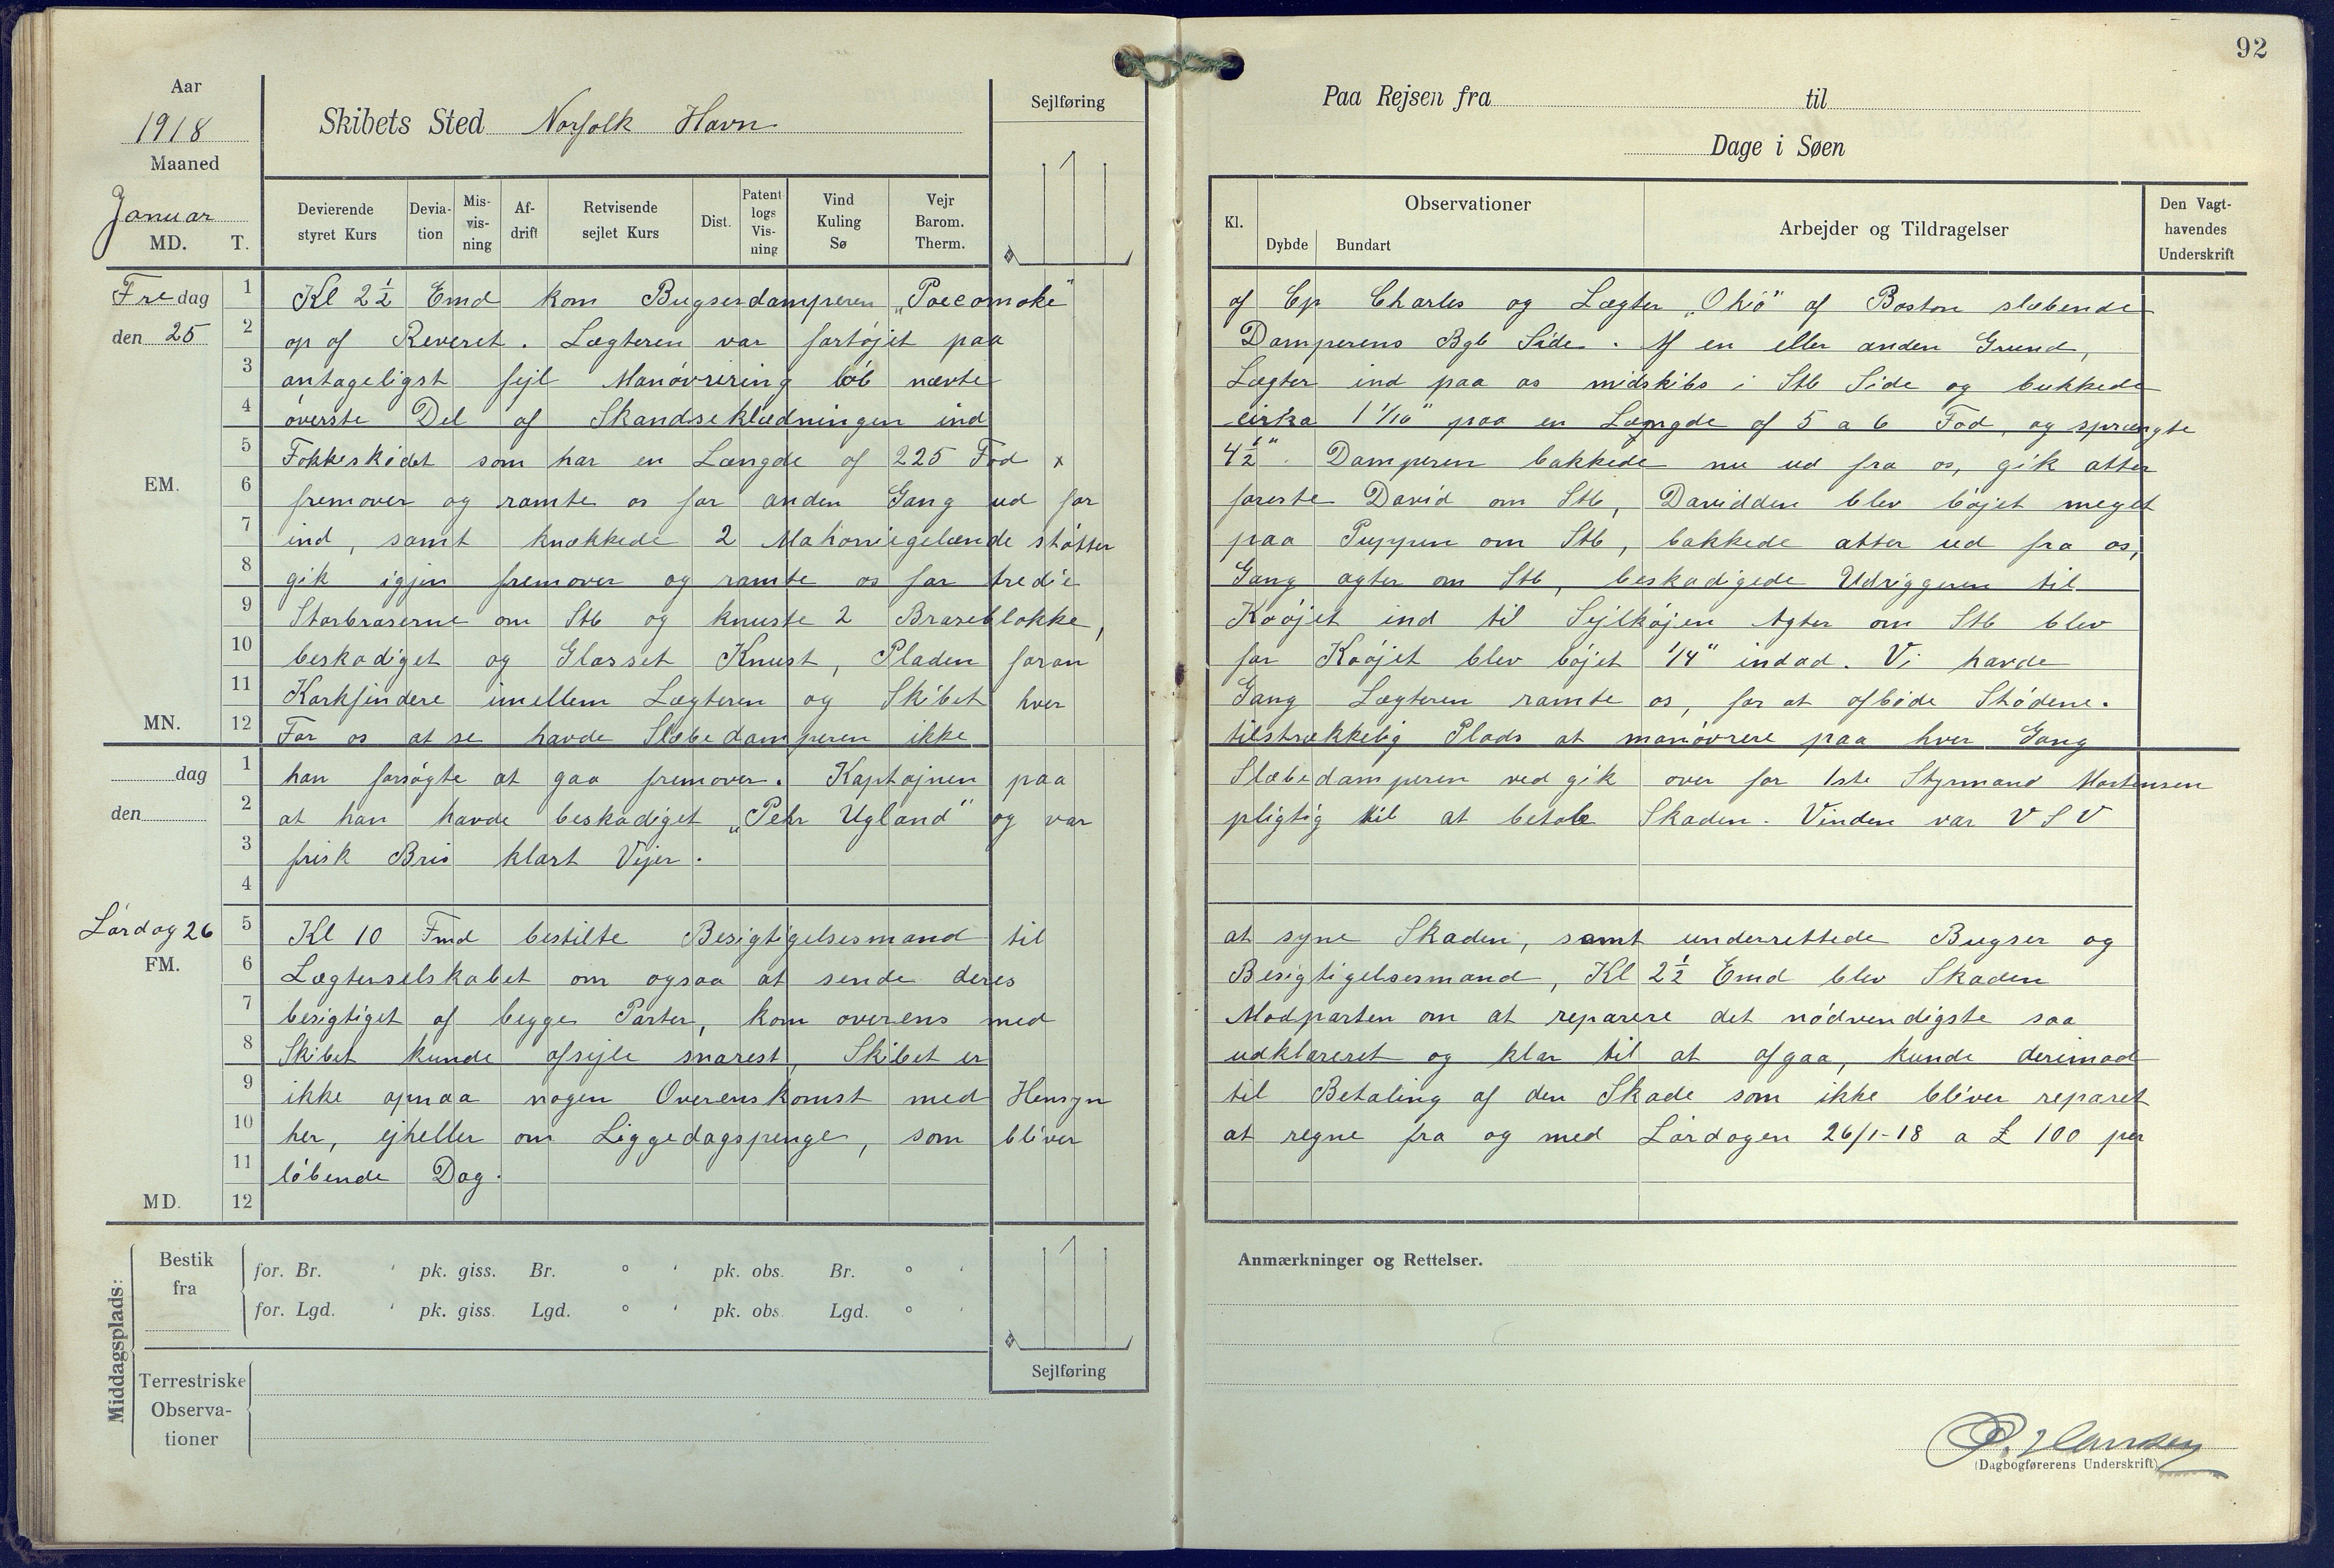 92
Aar
1918
Maaned
Januar
MD. T.
Skibets Sted Norfolk Havn
Sejlføring
Paa Rejsen fra til
Dage i Søen
Devierende styret Kurs
Deviation
Misvisning
Afdrift
Retvisende sejlet Kurs
Dist.
Patent logs Visning
Vind Kuling Sø
Vejr Barom. Therm.
Kl.
Observationer
Dybde
Bundart
Arbejder og Tildragelser
Den Vagthavendes Underskrift
Fredag
den 25
EM.
MN.
1 Kl 2½ Emd kom Bugserdamperen „Pocomoke" af Cp Charles og Lægter „Ohio" af Boston slæbende
2 op af Reveret. Lægteren var fortøjet paa Damperens Bgb Side. Af en eller anden Grund,
3 antageligst fejl Manøvrering løb nævte Lægter ind paa os midskibs i Stb Side og bukkede
4 øverste Del af Skandseklædningen ind cirka 1 1/16" paa en Længde af 5 a 6 Fod, og sprængte
5 Fokkeskødet som har en Længde af 225 Fod x 4½". Damperen bakkede nu ud fra os, gik atter
6 fremover og ramte os for anden Gang ud for foreste David om Stb, Davidden blev bøjet meget
7 ind, samt knækkede 2 Mahonnigelænde støtter paa Puppen om Stb, bakkede atter ud fra os,
8 gik igjen fremover og ramte os for tredie Gang agter om Stb, beskadigede Udriggeren til
9 Storbraserne om Stb og knuste 2 Braseblokke, Koøjet ind til Sejlkøjen Agter om Stb blev
10 beskadiget og Glasset Knust, Pladen foran for Koøjet blev bøjet 1/4" indad. Vi havde
11 Korkfindere imellem Lægteren og Skibet hver Gang Lægteren ramte os, for at afbøde Stødene.
12 For os at se havde Slæbedamperen ikke tilstrækkelig Plads at manøvrere paa hver Gang
dag
den
1 han forsøgte at gaa fremover. Kaptajnen paa Slæbedamperen vedgik over for 1ste Styrmand Mortensen
2 at han havde beskadiget „Pehr Ugland" og var pligtig til at betale Skaden. Vinden var VSV
3 frisk Bris klart Vejer.
4
Lørdag 26
FM.
MD.
5 Kl 10 Fmd bestilte Besigtigelsesmand til at syne Skaden, samt underrettede Bugser og
6 Lægterselskabet om ogsaa at sende deres Besigtigelsesmand, Kl 2½ Emd blev Skaden
7 besigtiget af begge Parter, kom overens med Modparten om at reparere det nødvendigste saa
8 Skibet kunde afsejle snarest, Skibet er udklareret og klar til at afgaa, kunde derimod
9 ikke opnaa nogen Overenskomst med Hensyn til Betaling af den Skade som ikke bliver reparet
10 her, ejheller om Liggedagspenge, som bliver at regne fra og med Lørdagen 26/1-18 a £ 100 per
11 løbende Dag.
12
Middagsplads:
Bestik fra
for. Br. ' pk. giss. Br. ° ' pk. obs. Br. ° '
for. Lgd. ' pk. giss. Lgd. ° ' pk. obs. Lgd. ° '
Terrestriske Observationer
Sejlføring
Anmærkninger og Rettelser.
P. Hansen
(Dagbogførerens Underskrift)